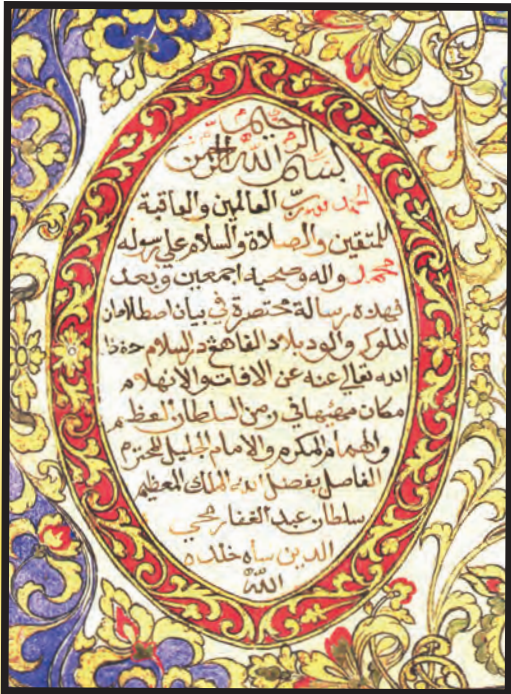 بسم الله الرحمن الرحيم
الحمد لله رب العالمين والعاقبة
للمتقين والصلاة والسلام علي رسوله
محمد واله وصحبه اجمعين وبعد
فهذه رسالة مختصرة في بيان اصطلاحات
الملوك بلاد الفاهڠ دار السلام حفظ
الله تعالي عنه عن الافات والانهلام
مكان في زمن السلطان العظيم
والهمام المكرم والامام الجليل المحترم
الفاصل بفضل الله الملك المعظم
سلطان عبد الغفار محي
الدين ساه خلده
الله